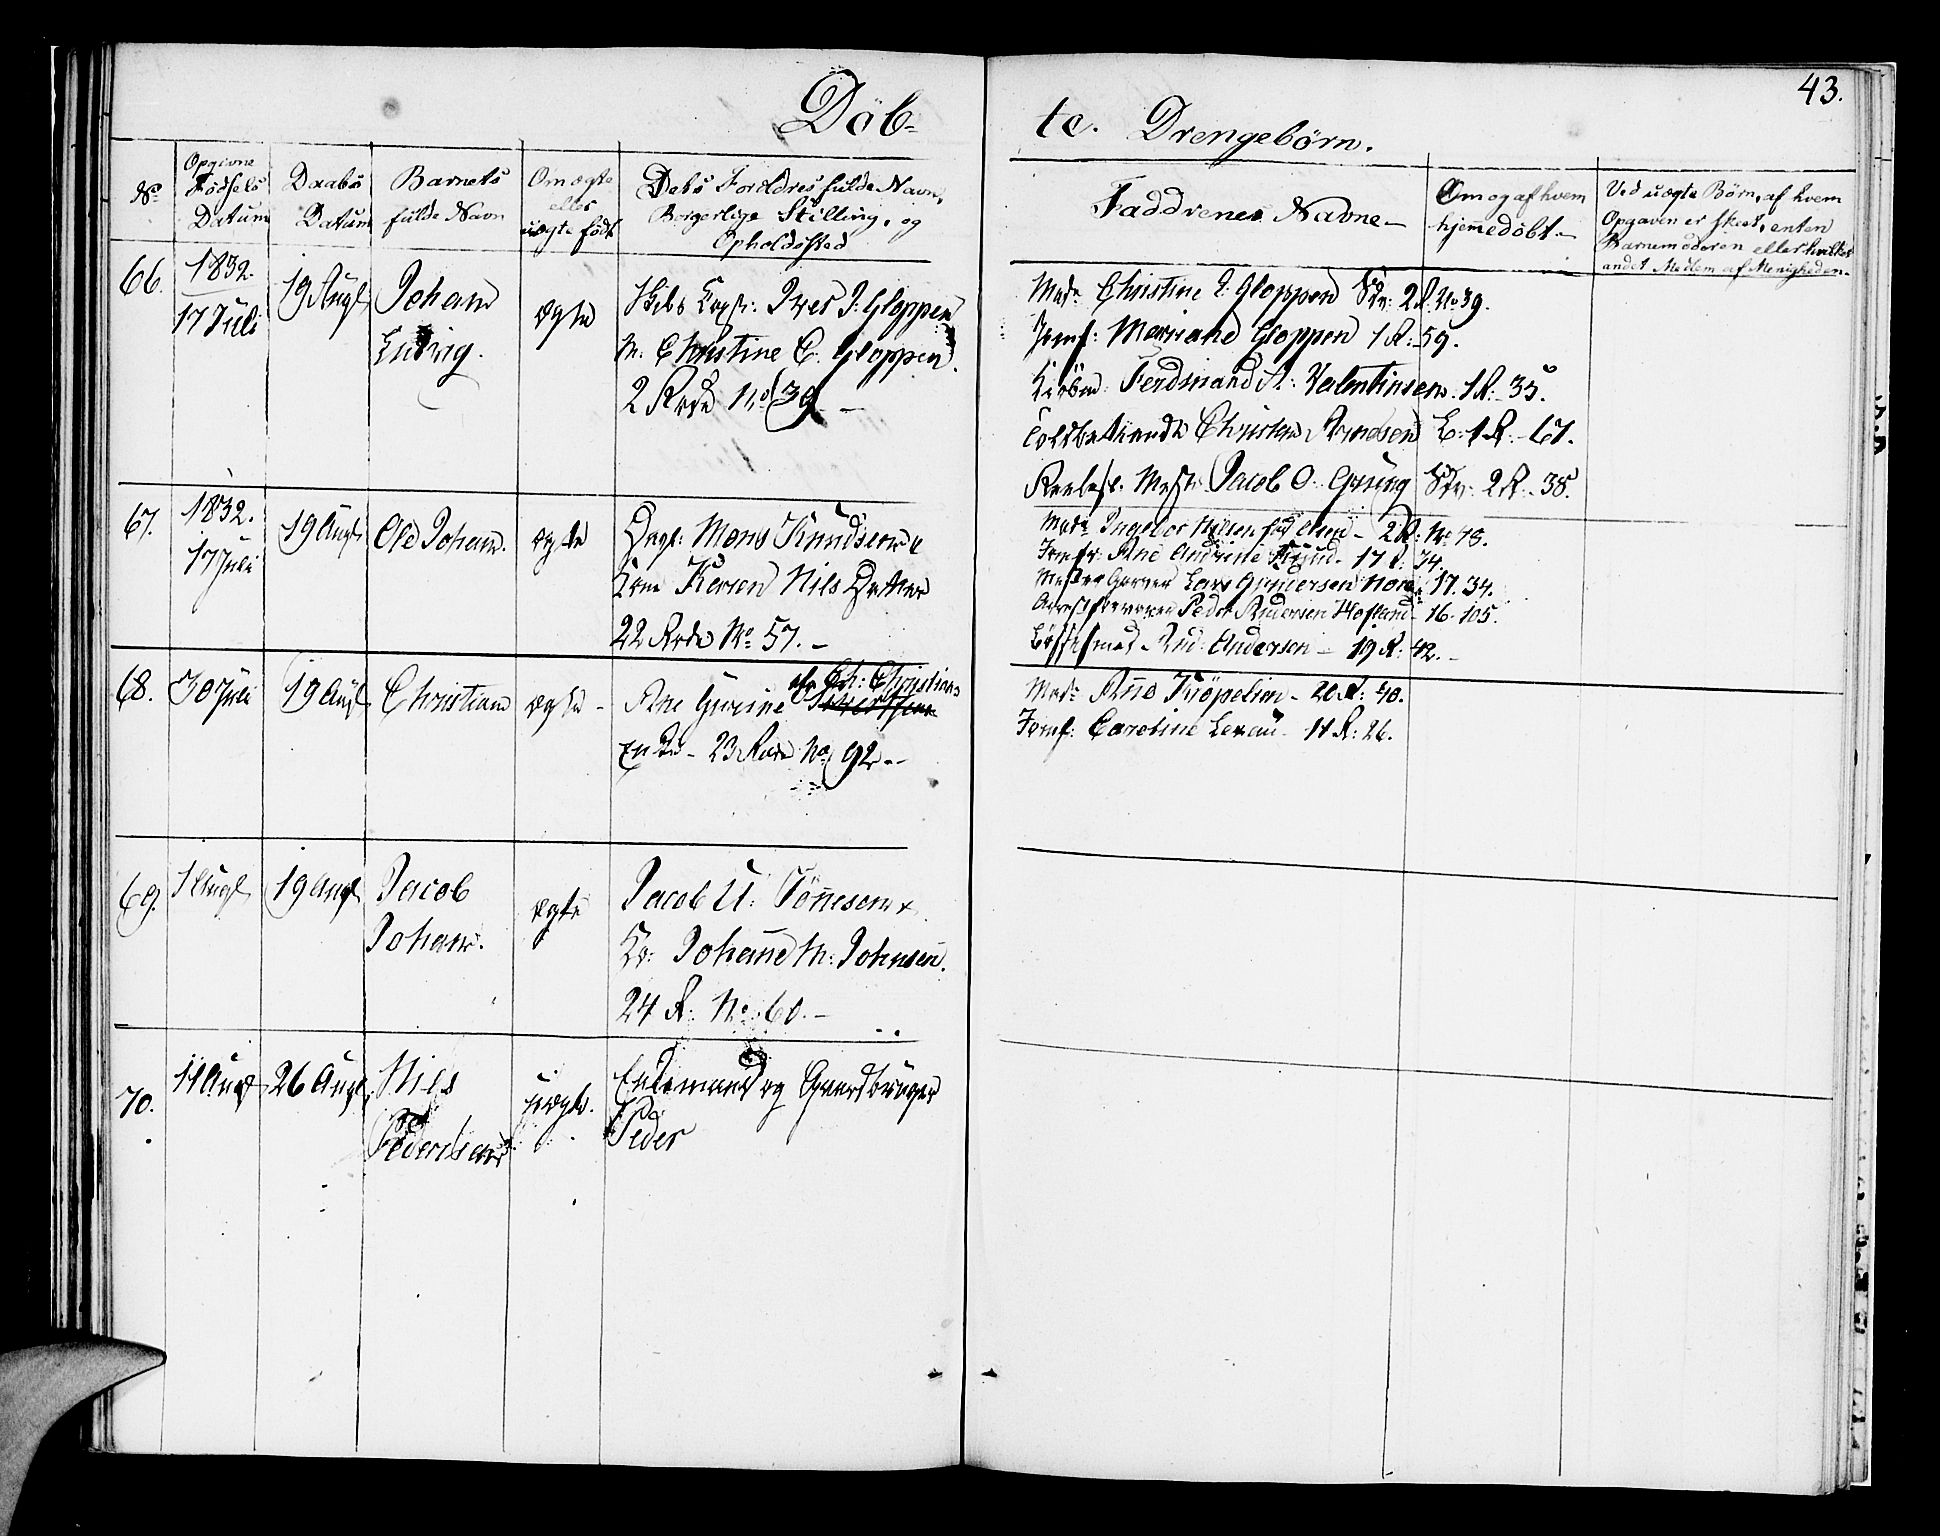 43.
Döb= te. Drengebörn.
No
Opgivne
Födsels
Datum
Daabs
Datum
Barnets
fulde Navn
Om ægte
eller
uægte födt
Dets Foroldres fulde Navn,
Borgerlige Stilling, og
Opholdssted
Faddrenes Navne
Om og af hvem
hjemedöbt.
Ved uægte Börn, af hvem
Opgaven er skeet, enten
Barnemoderen eller hvilket
andet Medlem af Menigheden.
66.
1832.
17 Juli
19 Augt
Johan
Ludvig.
ægte
Skibs Capt: Iver J: Gloppen
M. Christine C. Gloppen.
2 Rode No 39
Made Christine J: Gloppen 2 R. No 39.
Jomf: Mariane Gloppen 1 R: 59.
Ferdinand A: Valentinsen. 1 R: 35.
Toldbetiendt Christen Arnesen 1 R. 67.
Jacob O. Grung 2 R. 38.
67.
1832.
17 Juli
19 Augt
Ole Johan.
ægte
Dagl: Mons Knudsen &
Kone Keren Nils Datter
22 Rode No 57.
Made Ingebor Nilsen född Olsen 2 R: No 48.
Jomfr: Ane Andrine 17 R: 74.
Mester Garver Lars Gundersen 17. 34.
Peder Andersen Hofland 16. 105.
And: Andersen 19 R: 42.
68.
30 Juli
19 Augt
Christian
ægte
Ane Gurine Ch: Christians
Enke 23 Rode No 92.
Made Ane Kröpelien 20 R: 40.
Jomf: Caroline 11 R: 26.
69.
1 Augt
19 Augt
Jacob
Johan.
ægte
Jacob U: Tönnesen &
Ko: Johanne M: Johnsen.
24 R. No 60.
70.
11 Augt
26 Augt
Nils
Pedersen
uægte.
Enkemand og Gaardbruger
Peder